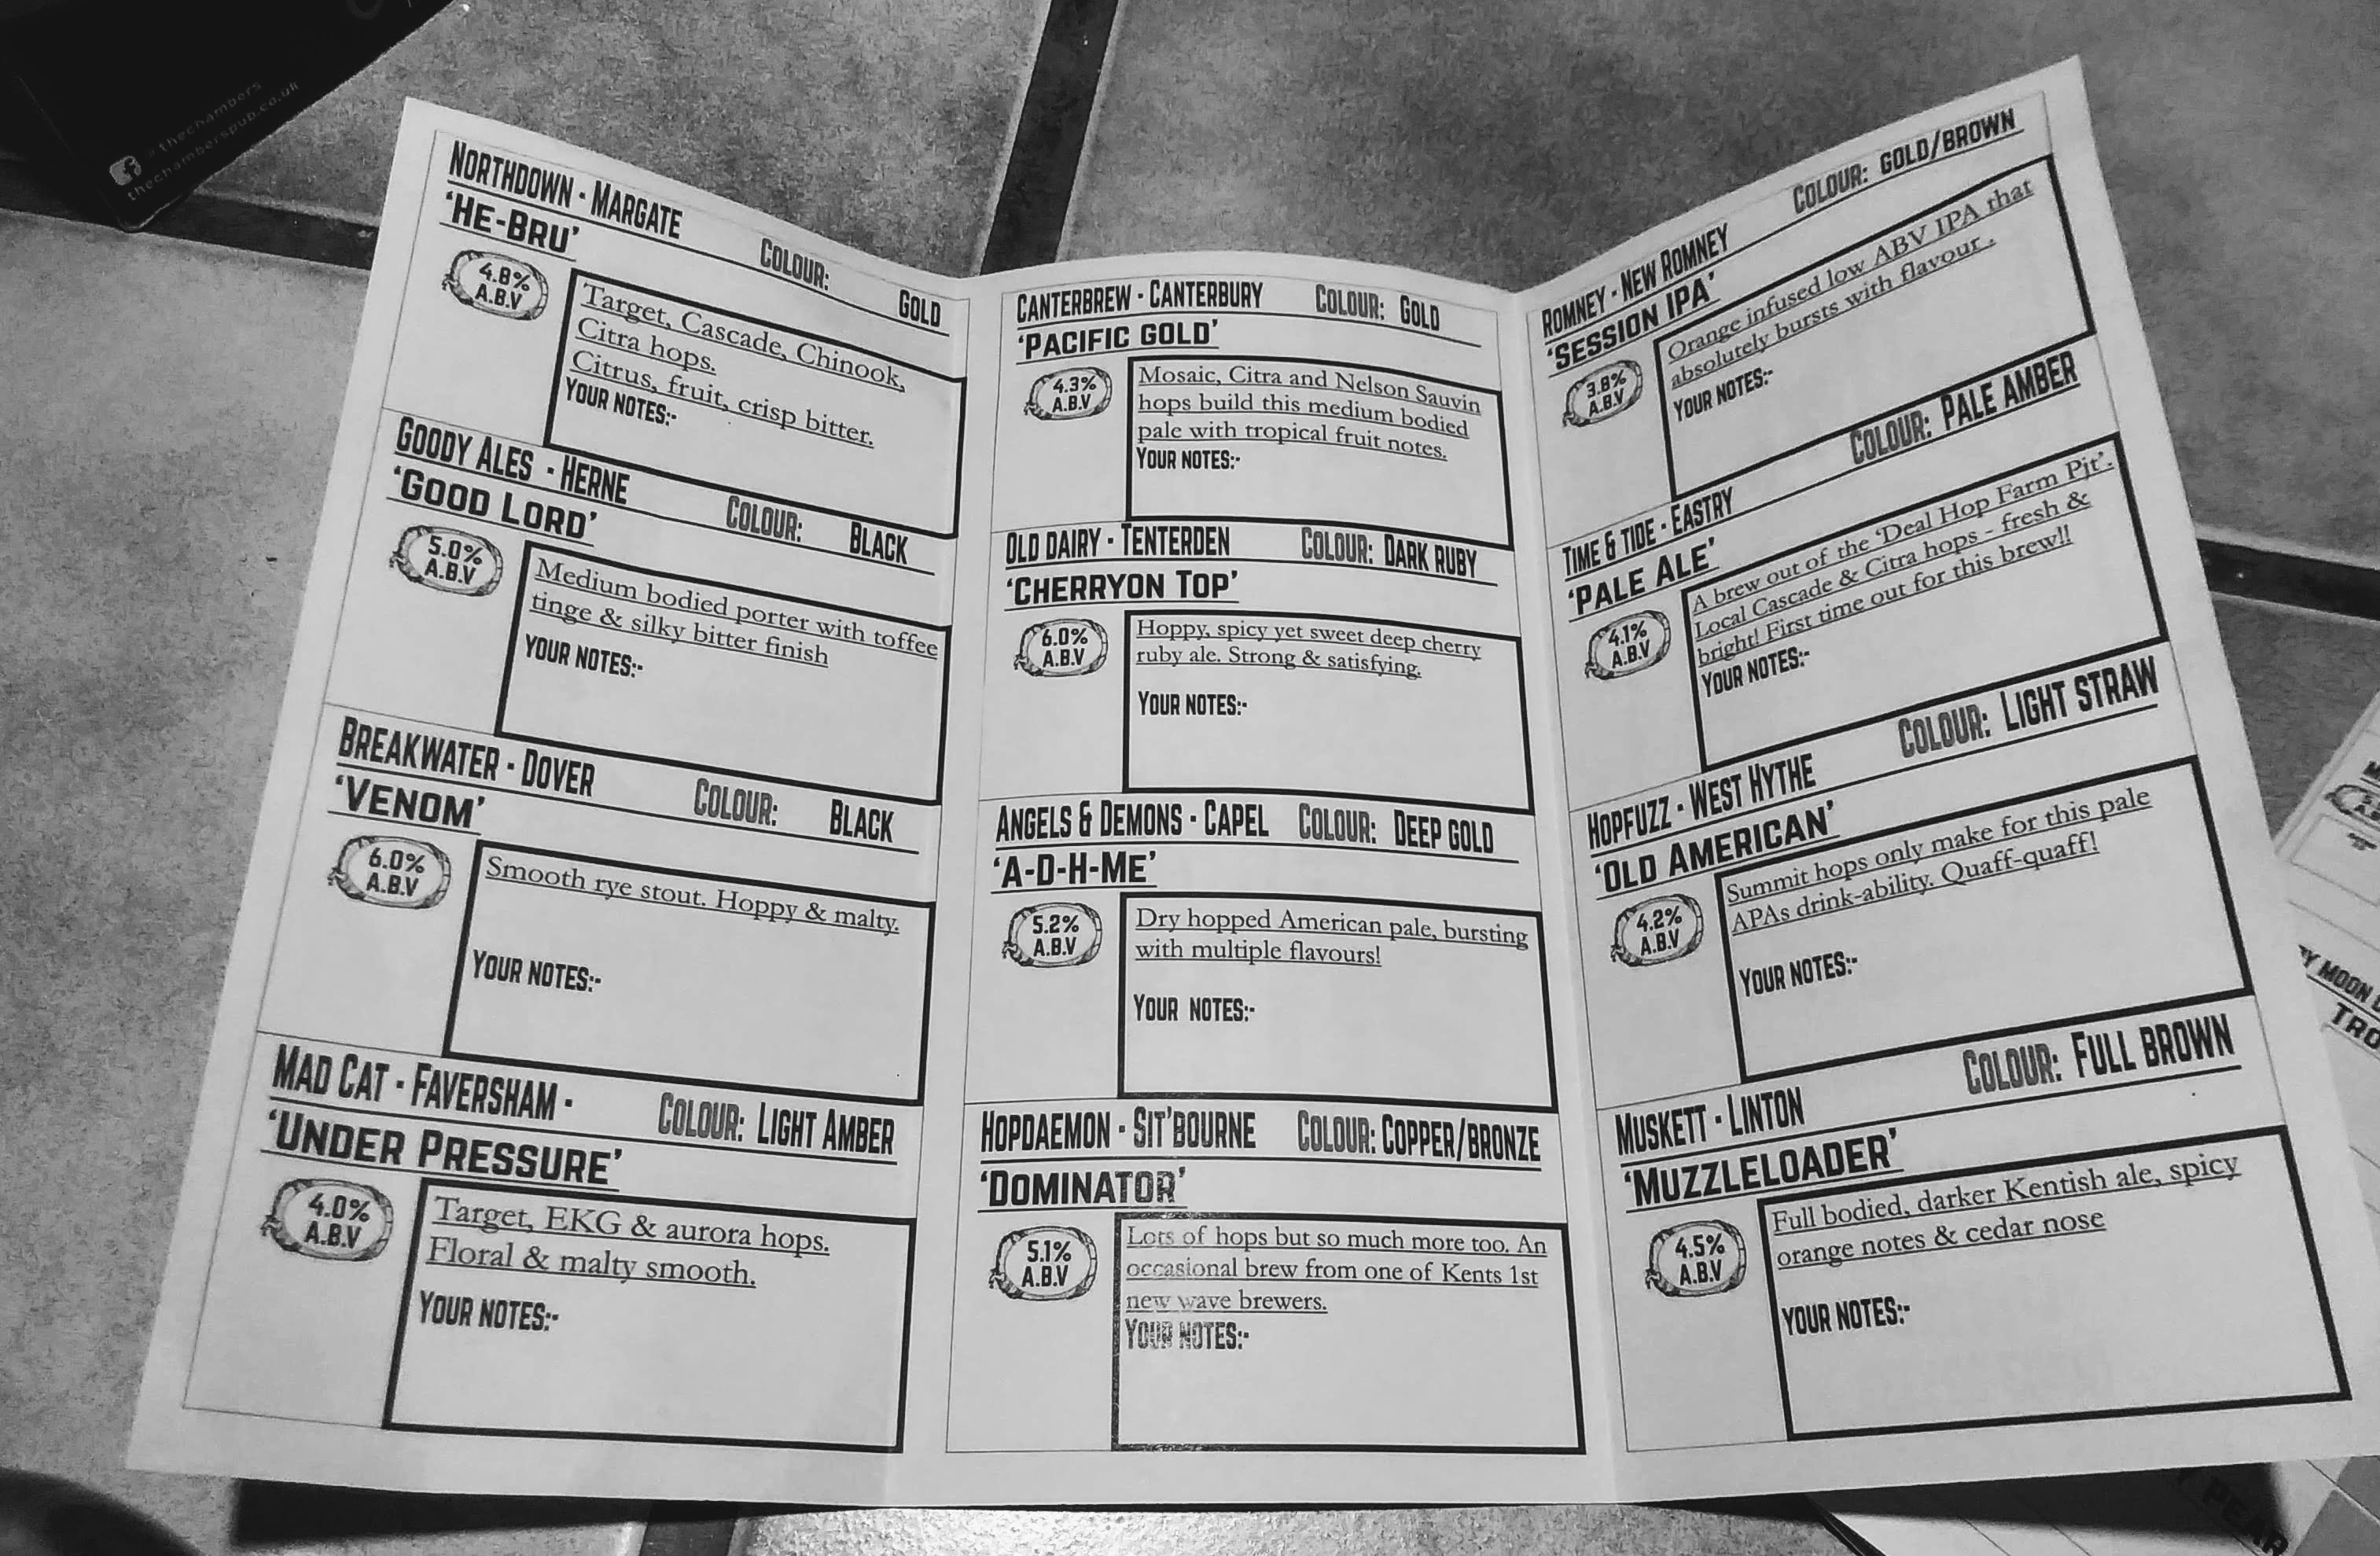 thechambers
thechamberspub.co.uk
NORTHDOWN - MARGATE
COLOUR: GOLD
'HE-BRU'
4.8%
A.B.V
Target, Cascade, Chinook,
Citra hops.
Citrus, fruit, crisp bitter.
YOUR NOTES:-
GOODY ALES - HERNE
COLOUR: BLACK
'GOOD LORD'
5.0%
A.B.V
Medium bodied porter with toffee
tinge & silky bitter finish
YOUR NOTES:-
BREAKWATER - DOVER
COLOUR: BLACK
'VENOM'
6.0%
A.B.V
Smooth rye stout. Hoppy & malty.
YOUR NOTES:-
MAD CAT - FAVERSHAM -
COLOUR: LIGHT AMBER
'UNDER PRESSURE'
4.0%
A.B.V
Target, EKG & aurora hops.
Floral & malty smooth.
YOUR NOTES:-
CANTERBREW - CANTERBURY COLOUR: GOLD
'PACIFIC GOLD'
4.3%
A.B.V
Mosaic, Citra and Nelson Sauvin
hops build this medium bodied
pale with tropical fruit notes.
YOUR NOTES:-
OLD DAIRY - TENTERDEN COLOUR: DARK RUBY
'CHERRYON TOP'
6.0%
A.B.V
Hoppy, spicy yet sweet deep cherry
ruby ale. Strong & satisfying.
YOUR NOTES:-
ANGELS & DEMONS - CAPEL COLOUR: DEEP GOLD
'A-D-H-ME'
5.2%
A.B.V
Dry hopped American pale, bursting
with multiple flavours!
YOUR NOTES:-
HOPDAEMON - SIT'BOURNE COLOUR: COPPER/BRONZE
'DOMINATOR'
5.1%
A.B.V
Lots of hops but so much more too. An
occasional brew from one of Kents 1st
new wave brewers.
YOUR NOTES:-
ROMNEY - NEW ROMNEY COLOUR: GOLD/BROWN
'SESSION IPA'
3.8%
A.B.V
Orange infused low ABV IPA that
absolutely bursts with flavour .
YOUR NOTES:-
TIME & TIDE - EASTRY COLOUR: PALE AMBER
'PALE ALE'
4.1%
A.B.V
A brew out of the 'Deal Hop Farm Pjt'.
Local Cascade & Citra hops - fresh &
bright! First time out for this brew!!
YOUR NOTES:-
HOPFUZZ - WEST HYTHE COLOUR: LIGHT STRAW
'OLD AMERICAN'
4.2%
A.B.V
Summit hops only make for this pale
APAs drink-ability. Quaff-quaff!
YOUR NOTES:-
MUSKETT - LINTON COLOUR: FULL BROWN
'MUZZLELOADER'
4.5%
A.B.V
Full bodied, darker Kentish ale, spicy
orange notes & cedar nose
YOUR NOTES:-
MOON